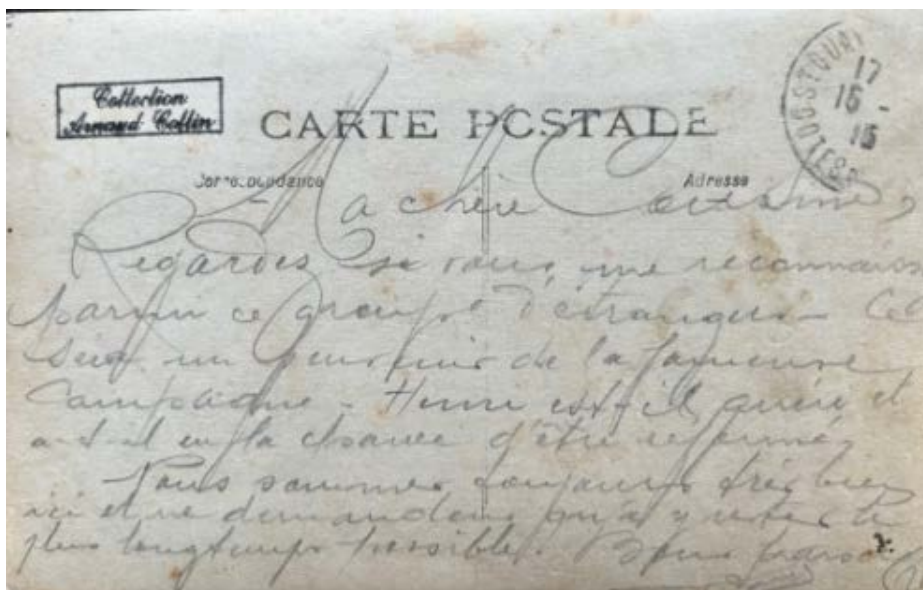 Collection
Armand Collin
CARTE POSTALE
17
15 -
15
Correspondance
Adresse
Ma chère Cousine,
Regardes si vous me reconnaissez
parmi ce groupe d'étrangers - Cel
sera un souvenir de la fameuse
Campagne - Henri est-il guéri et
a-t-il eu la chance d'être réformé
Nous sommes toujours très bien
ici et ne demandons qu'à y rester le
plus longtemps possible. Bons